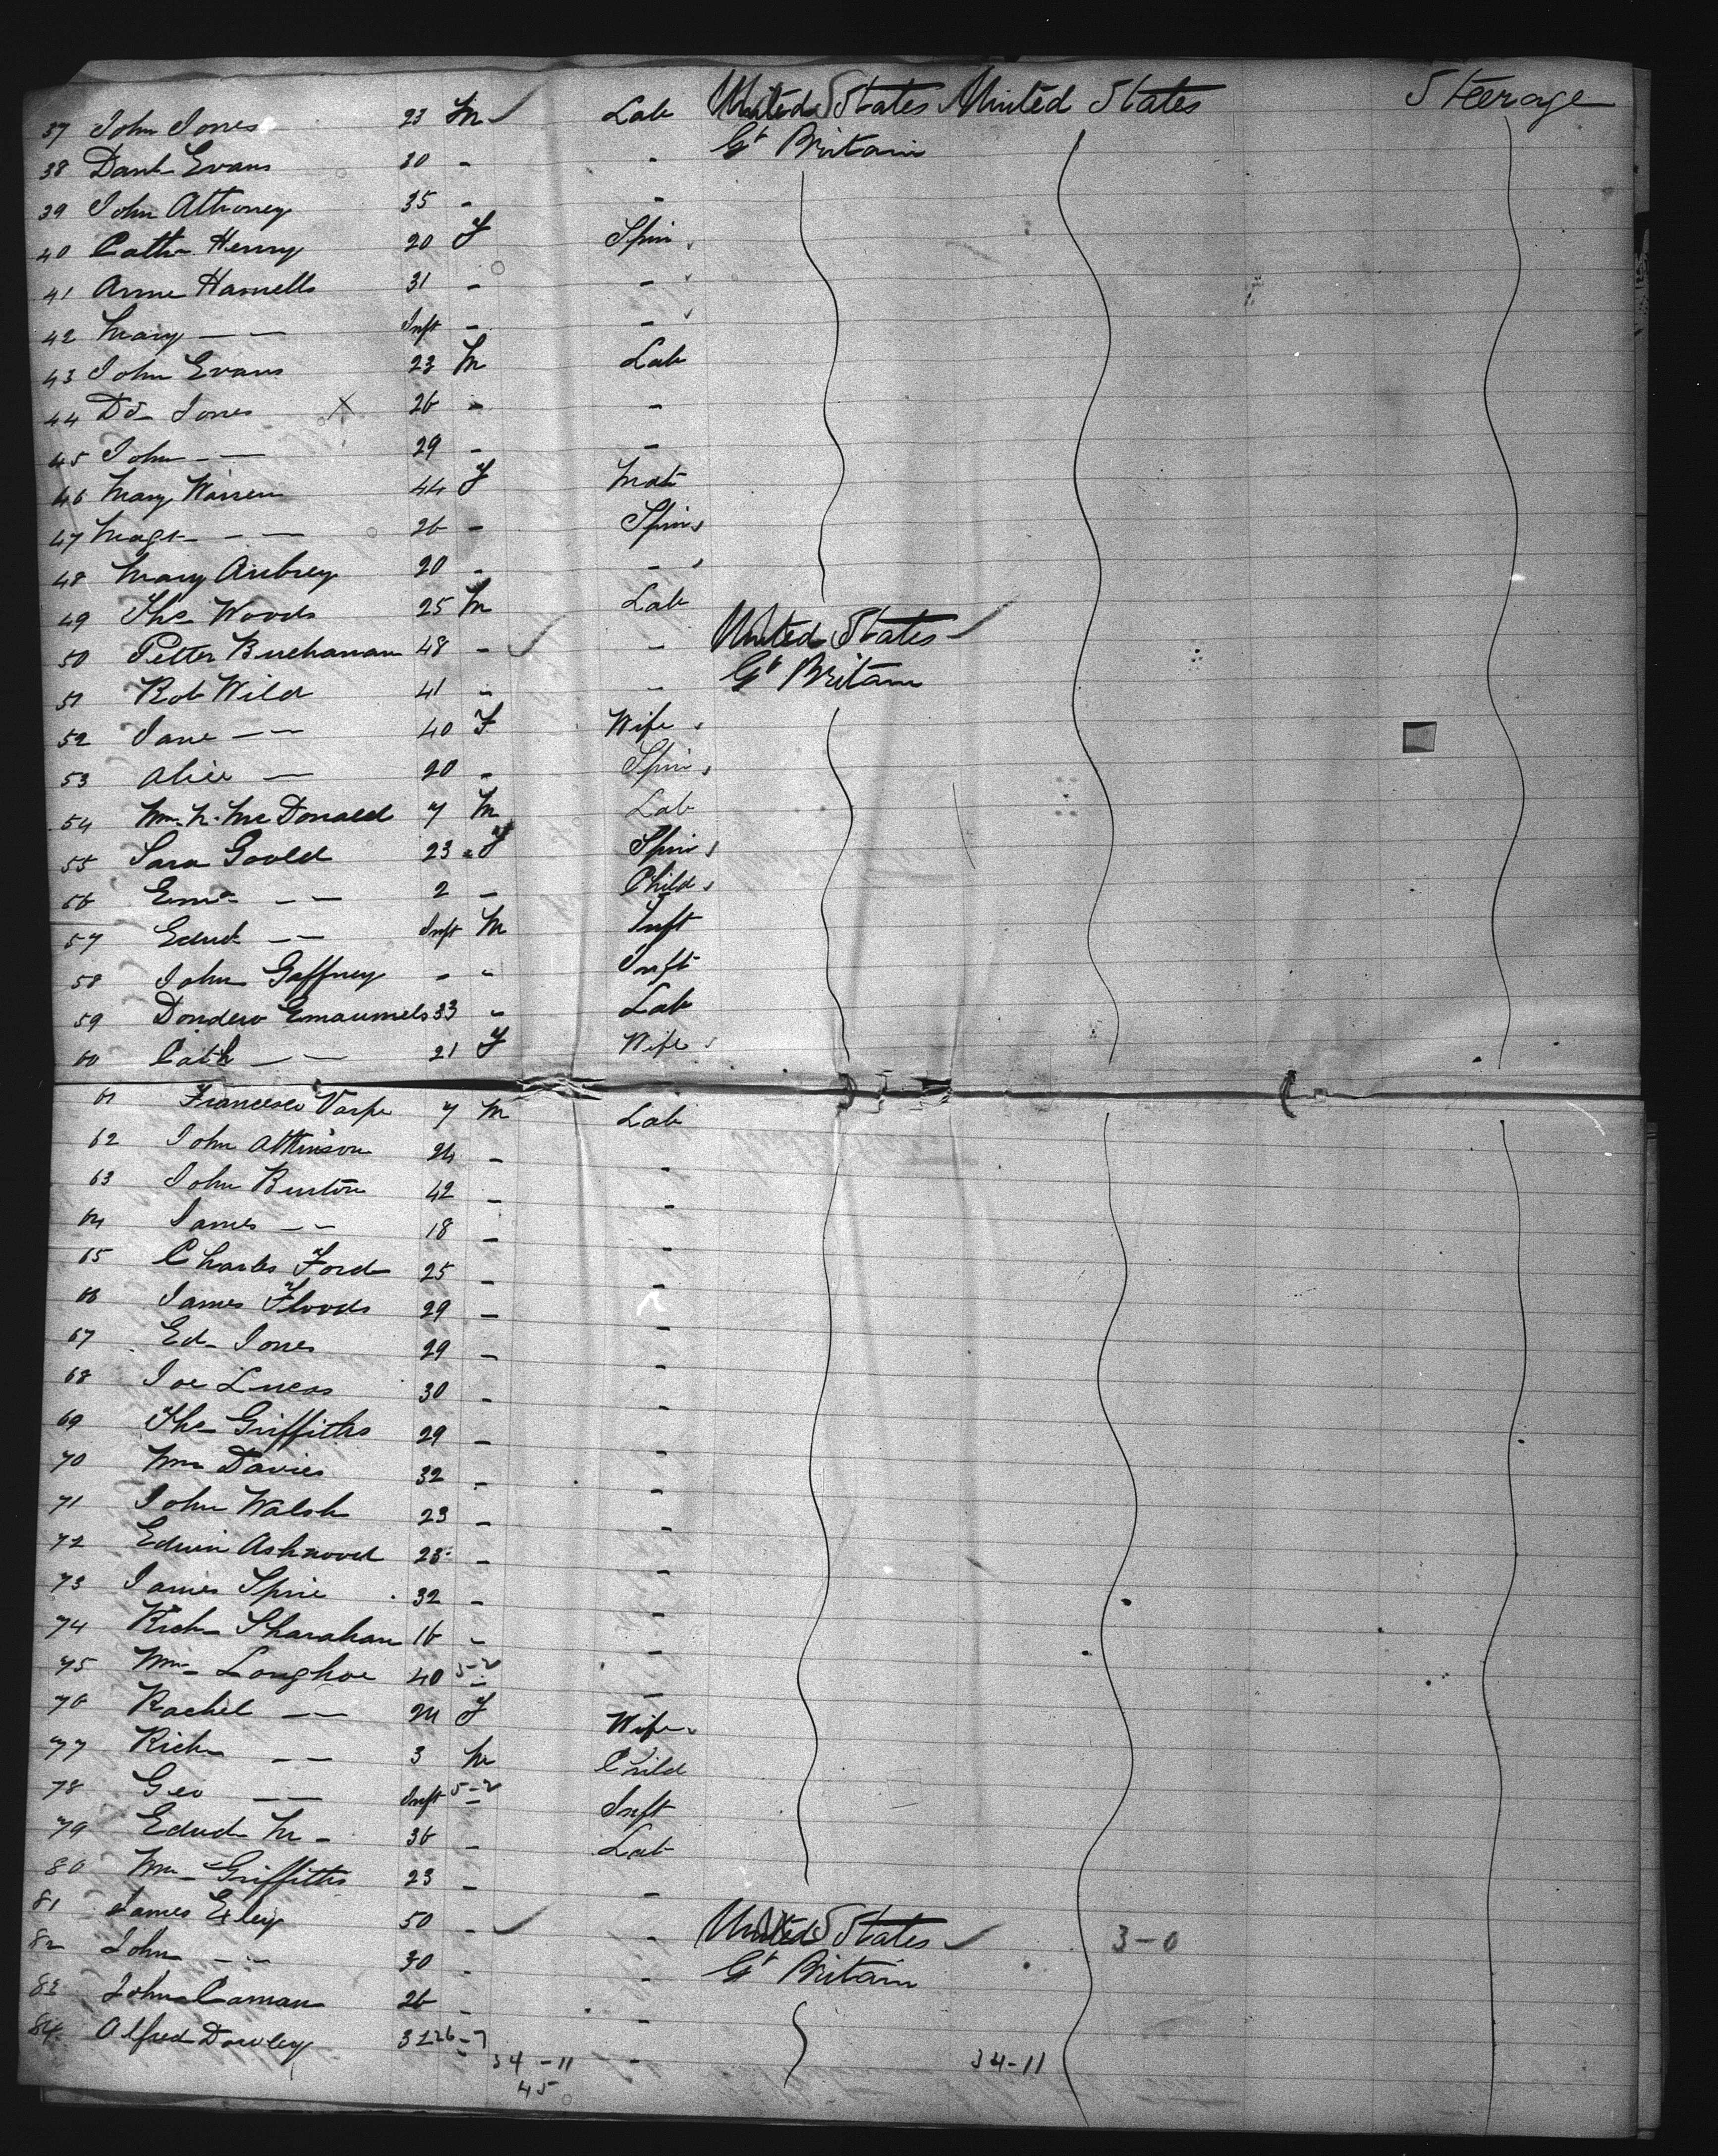 37 John Jones 23 M Lab United States United States Steerage
38 Danl Evans 20 - - Gt Britain
39 John Athoney 35 - -
40 Cath Henry 20 F Spin
41 Anne Hamells 31 - -
42 Mary — — Inft - -
43 John Evans 23 M Lab
44 Dd Jones X 26 - -
45 John - — 29 - -
46 Mary Warren 44 F Mat
47 Magt - — 26 - Spin
48 Mary Aubrey 20 - -
49 Tho Woods 25 M Lab
50 Petter Buchanan 48 - - United States
51 Rob Wild 41 - - Gt Britain
52 Jane — — 40 F Wife
53 Alice — 20 - Spin
54 Wm. McDonald 7 M Lab
55 Sara Goold 23 F Spin
56 Em — — 2 - Child
57 Edwd — — Inft M Inft
58 John Gaffney - - Inft
59 Dondero Emaumels 33 - Lab
60 Cath — — 21 F Wife
61 Francesco 7 M Lab
62 John Attkinson 24 - -
63 John Burton 42 - -
64 James — — 18 - -
65 Charles Ford 25 - -
66 James Floods 29 - -
67 Ed- Jones 29 - -
68 Joe Lucas 30 - -
69 Tho Griffiths 29 - -
70 Wm Davies 32 - -
71 John Walsh 23 - -
72 Edwin Ashwood 23 - -
73 James Sprie 32 - -
74 Rich Sharahan 16 - -
75 Wm Longhoe 40 5-2 - -
76 Rachel — — 24 F Wife
77 Rich — — 3 M Child
78 Geo — — Inft 5-2 - Inft
79 Edwd M - 36 - Lab
80 Wm Griffiths 23 - -
81 James Eley 50 - - United States 3-0
82 John — — 30 - - Gt Britain
83 John Caman 26 - -
84 Alfred Dowley 32 26-7 -
34-11 34-11
45